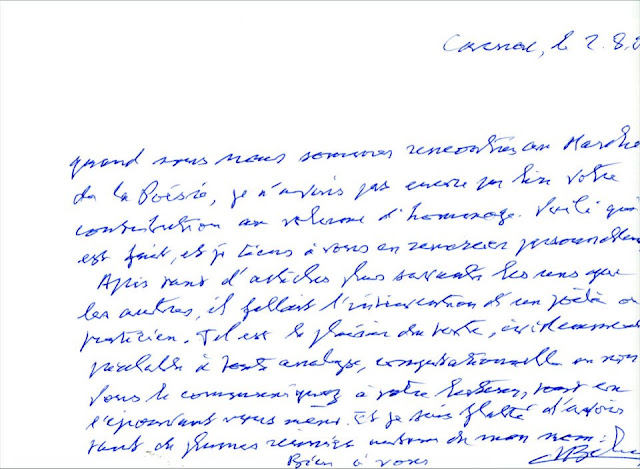 le 2.8.
quand nous nous sommes rencontrés au Marché
de la Poésie, je n'avais pas encore pu lire votre
contribution au volume d'hommage. Voilà qui
est fait, et je tiens à vous en remercier personnellem
Après tant d'articles plus savants les uns que
les autres, il fallait l'intervention d'un poète
praticien. Tel est le plaisir du texte, évidemment
préalable à toute analyse, computationnelle ou non
Vous le communiquez à votre lecteur, tout en
l'éprouvant vous-même. Et je suis flatté d'avoir
tant de plumes réunies autour de mon nom.
Bien à vous